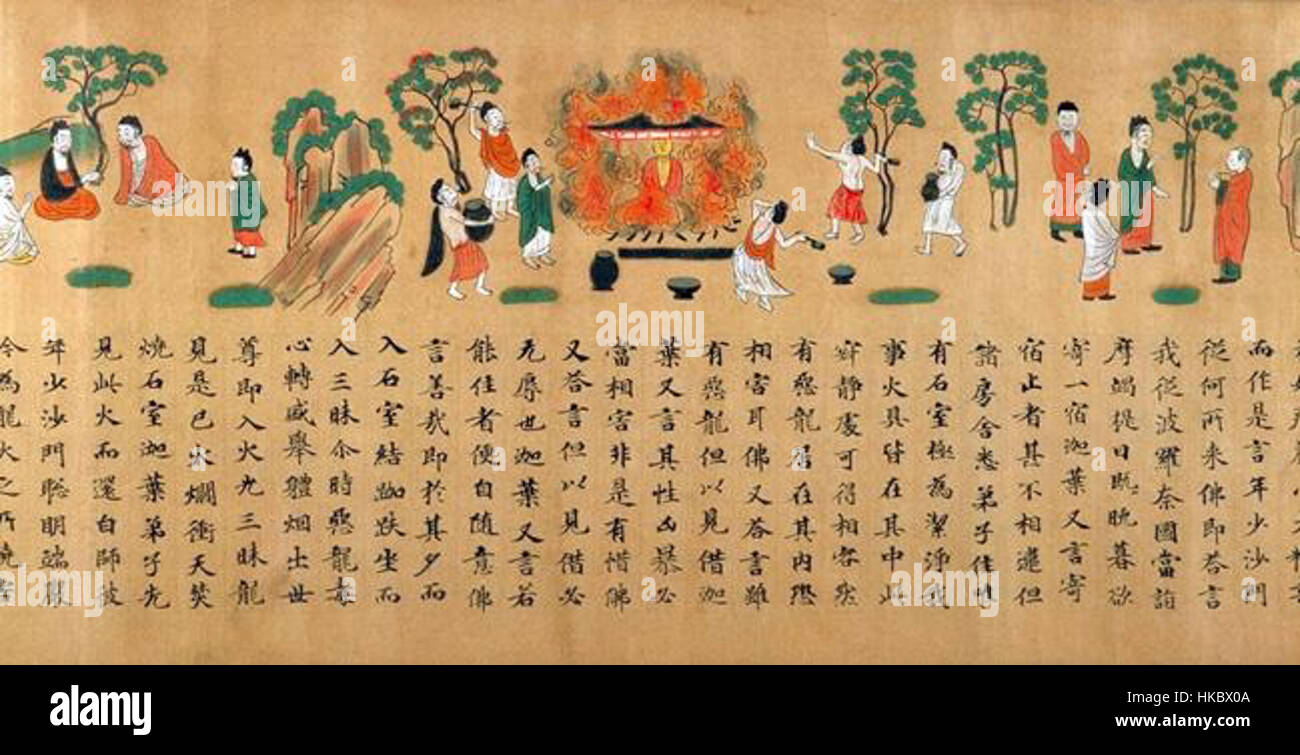 而作是言年少沙門
從何所来佛即荅言
我從波羅奈國當詣
摩竭提日既晩暮欲
寄一宿迦葉又言寄
宿止者甚不相違但
諸房舍悉弟子住唯
有石室極為潔淨我
事火具皆在其中此
寂静處可得相容然
有惡龍居在其内恐
相害耳佛又荅言雖
有惡龍但以見借迦
葉又言其性凶暴必
當相害非是有惜佛
又荅言但以見借必
无辱也迦葉又言若
能住者便自随意佛
言善哉即於其夕而
入石室結跏趺坐而
入三昧尒時惡龍毒
心轉盛舉體烟出世
尊即入火光三昧龍
見是已火爓衝天焚
燒石室迦葉弟子先
見此火而還白師彼
年少沙門聡明端嚴
今為龍火之所燒害
alamy stock photo
HKBX0A
www.alamy.com